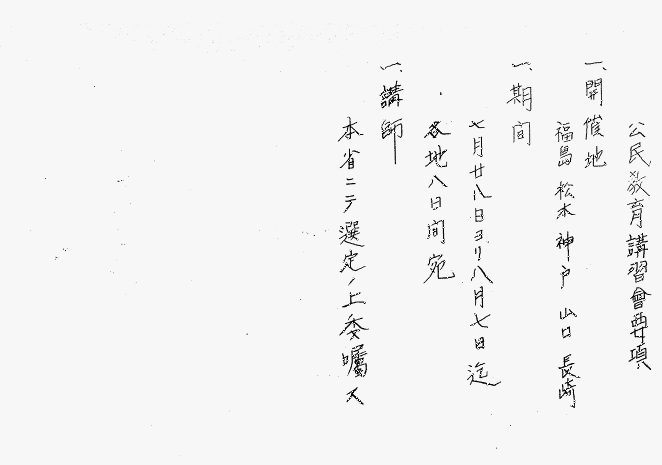 公民教育講習會要項
一、開催地
福島 松本 神戸 山口 長崎
一、期間
七月廿八日ヨリ八月七日迄
各地八日間宛
一、講師
本省ニテ選定ノ上委囑ス